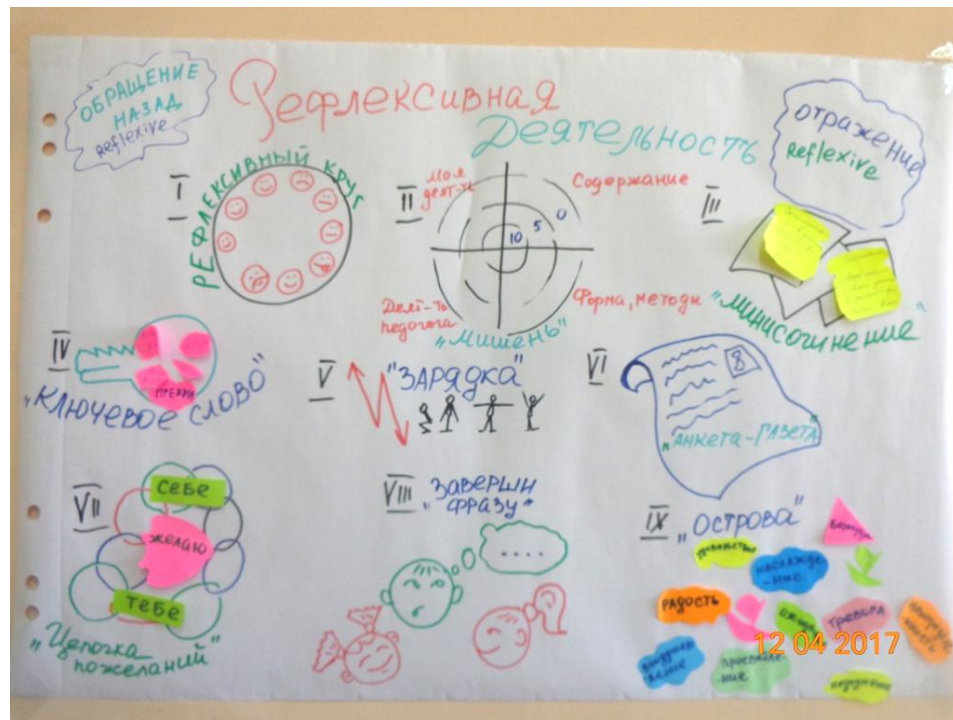 ОБРАЩЕНИЕ
НАЗАД
Reflexive
Рефлексивная
Деятельность
отражение
Reflexive
I
РЕФЛЕКСИВНЫЙ КРУГ
II
Моя
деят-ть
Содержание
10 5 0
Деят-ть
педагога
Форма, методы
"Мишень"
III
"МИНИСОЧИНЕНИЕ"
IV
"КЛЮЧЕВОЕ СЛОВО"
V
"ЗАРЯДКА"
VI
8
"АНКЕТА-ГАЗЕТА"
VII
СЕБЕ
желаю
ТЕБЕ
"Цепочка
пожеланий"
VIII
"Заверши
фразу"
....
IX "ОСТРОВА"
наслажде
-ние
РАДОСТЬ
тревога
просветле-
ние
12 04 2017